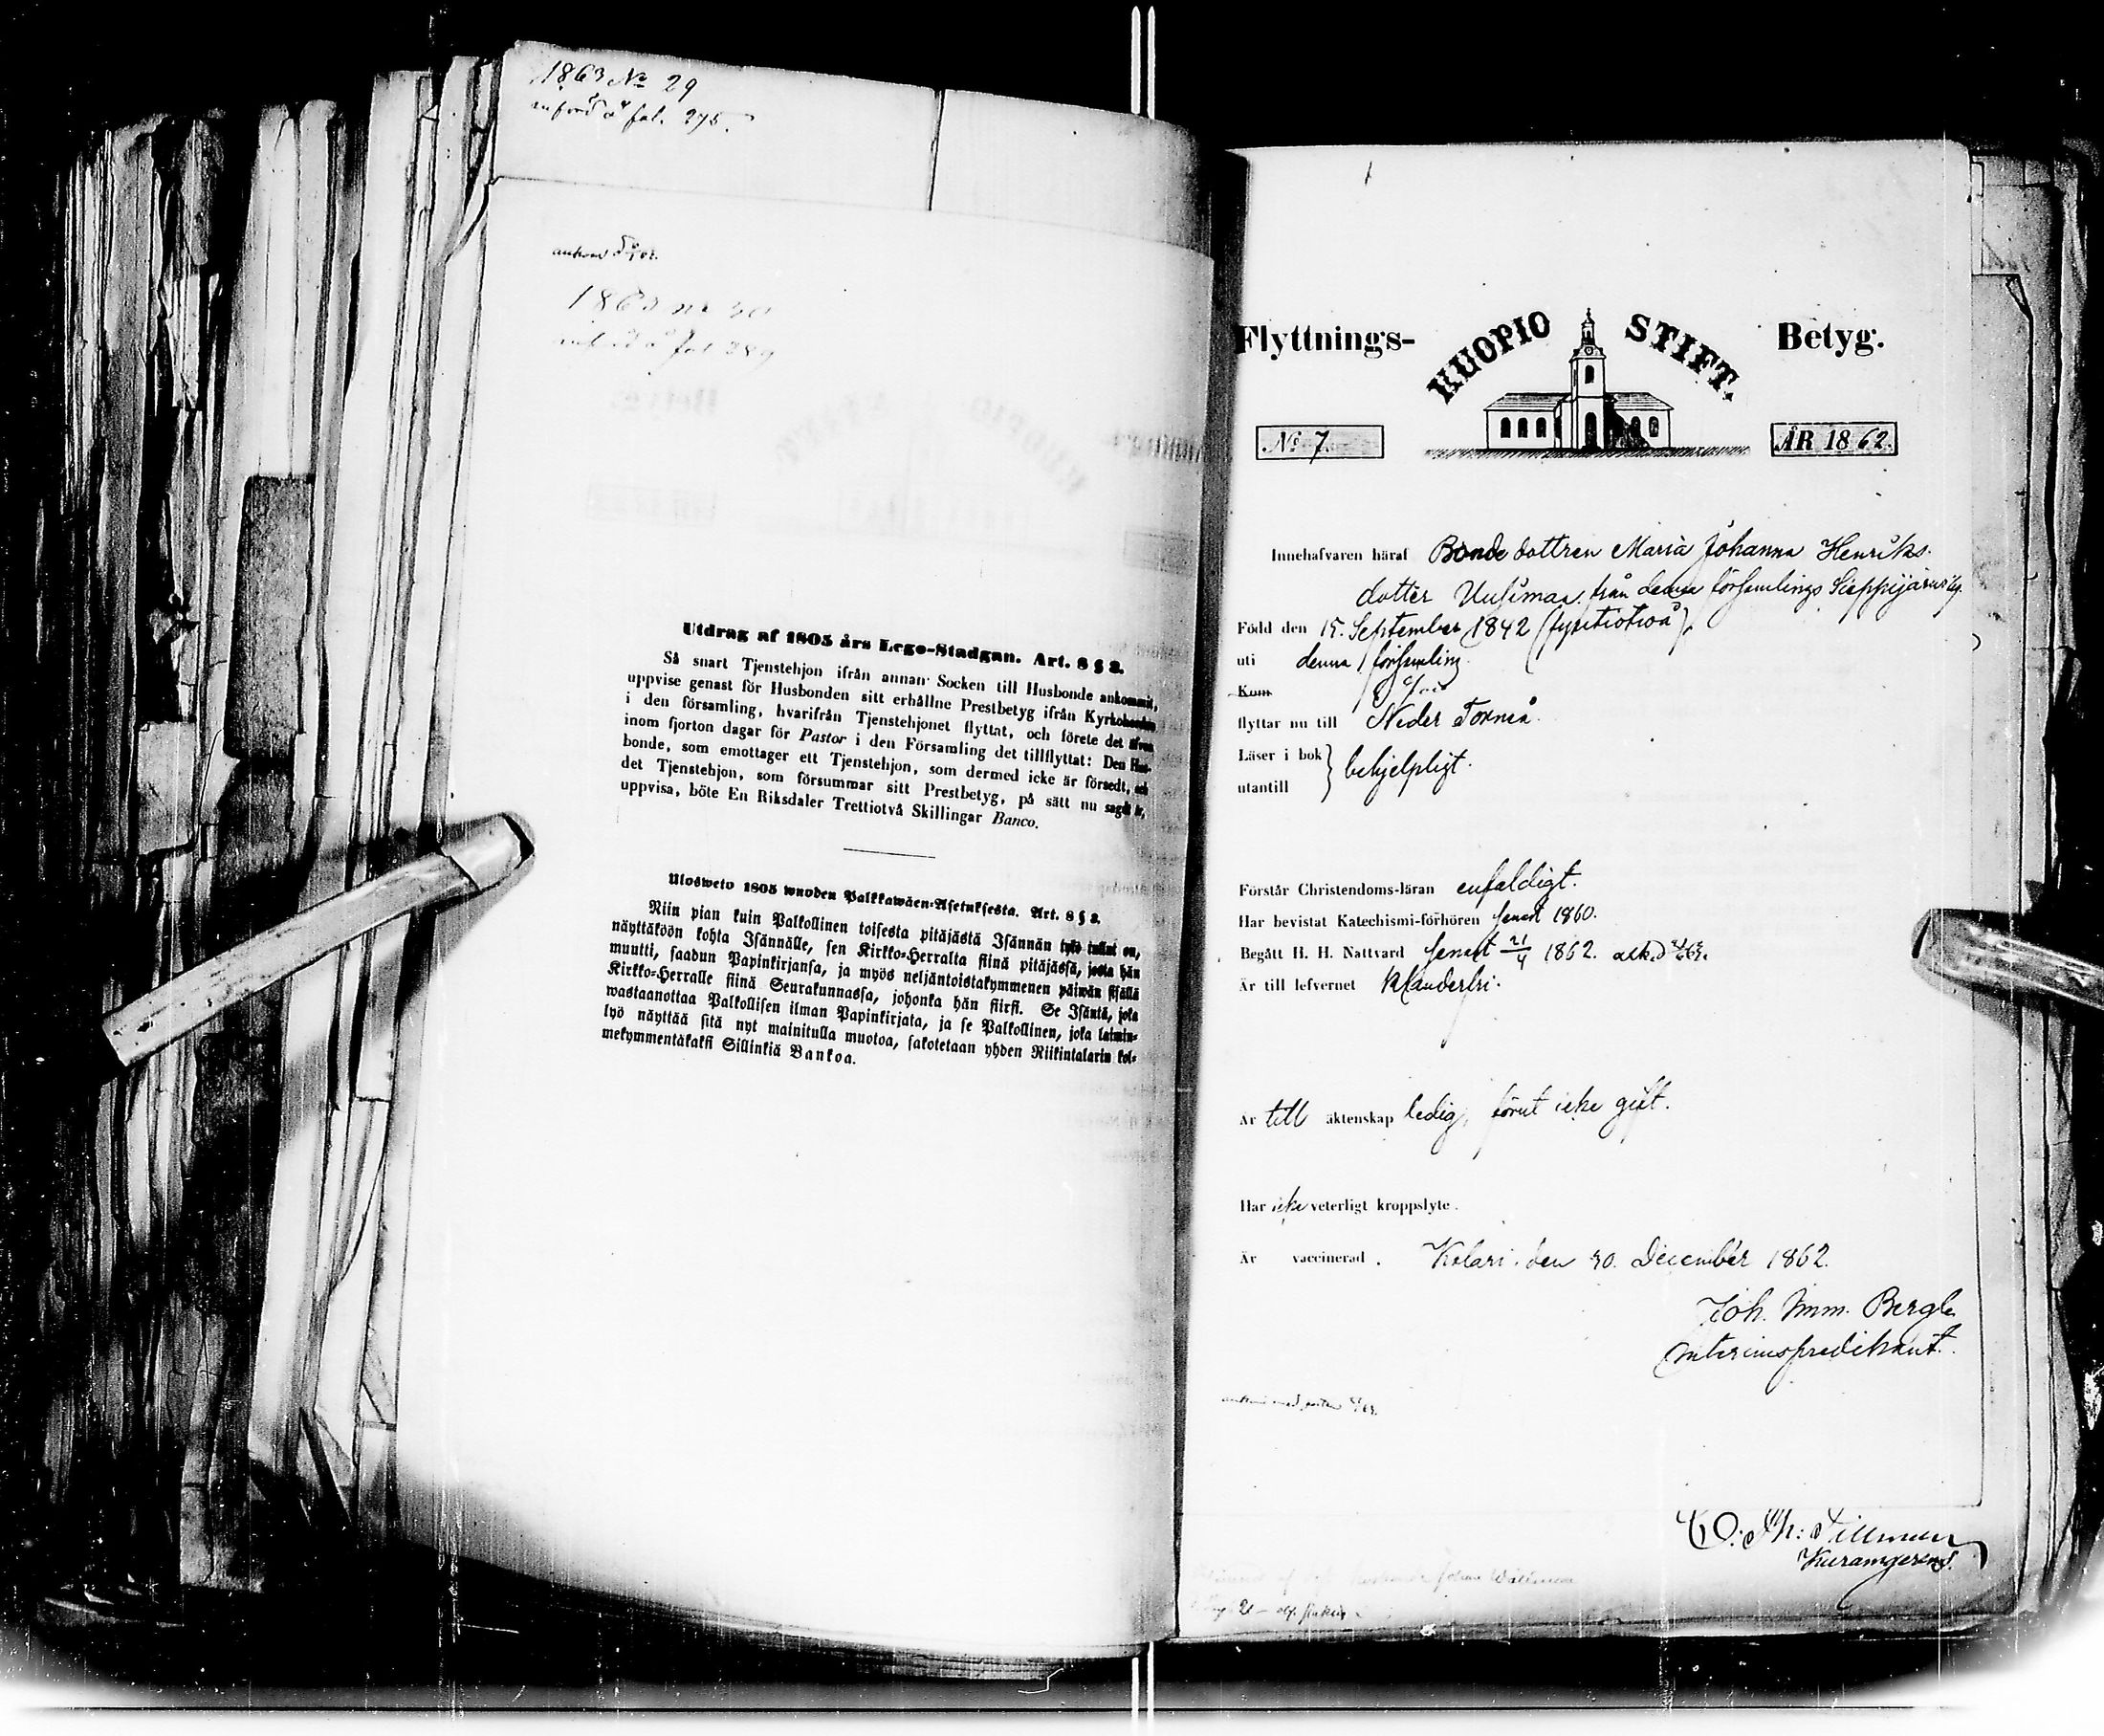 1863 No 29
införd å fol. 275.
1863 no 30
införd å fol 289
Utdrag af 1805 års Lego-Stadgan. Art. 8 § 2.
Så snart Tjenstehjon ifrån annan Socken till Husbonde ankommit,
uppvise genast för Husbonden sitt erhållne Prestbetyg ifrån Kyrkoherden
i den församling, hvarifrån Tjenstehjonet flyttat, och förete det äfven
inom fjorton dagar för Pastor i den Församling det tillflyttat: Den Hus-
bonde, som emottager ett Tjenstehjon, som dermed icke är försedt, och
det Tjenstehjon, som försummar sitt Prestbetyg, på sätt nu sagdt är,
uppvisa, böte En Riksdaler Trettiotvå Skillingar Banco.
Ulosweto 1805 wuoden Palkkawäen-Asetuksesta. Art. 8 § 2.
Niin pian kuin Palkollinen toisesta pitäjästä Isännän työ tullut on,
näyttäköön kohta Isännälle, sen Kirkko-Herralta siinä pitäjässä, josta hän
muutti, saadun Papinkirjansa, ja myös neljäntoistakymmenen päiwän sisällä
Kirkko-Herralle siinä Seurakunnassa, johonka hän siirsi. Se Isäntä, joka
wastaanottaa Palkollisen ilman Papinkirjata, ja se Palkollinen, joka laimin-
lyö näyttää sitä nyt mainitulla muotoa, sakotetaan yhden Riikintalarin kol-
mekymmentäkaksi Sillinkiä Bankoa.
Flyttnings- KUOPIO STIFT. Betyg.
No 7. ÅR 1862.
Innehafvaren häraf Bonde dottren Maria Johanna Henriks-
dotter Uusimaa från denna församlings Sieppijärvi by.
Född den 15. September 1842 (fyratiotvå),
uti denna församling.
Kom
flyttar nu till Neder Torneå.
Läser i bok
utantill } behjelpligt.
Förstår Christendoms-läran enfaldigt.
Har bevistat Katechismi-förhören senast 1860.
Begått H. H. Nattvard senast 21/4 1862.
Är till lefvernet klanderfri.
Är till äktenskap ledig, förut icke gift.
Har icke veterligt kroppslyte.
Är vaccinerad. Kolari. den 30. December 1862.
Joh. Imm. Bergh
Interimspredikant.